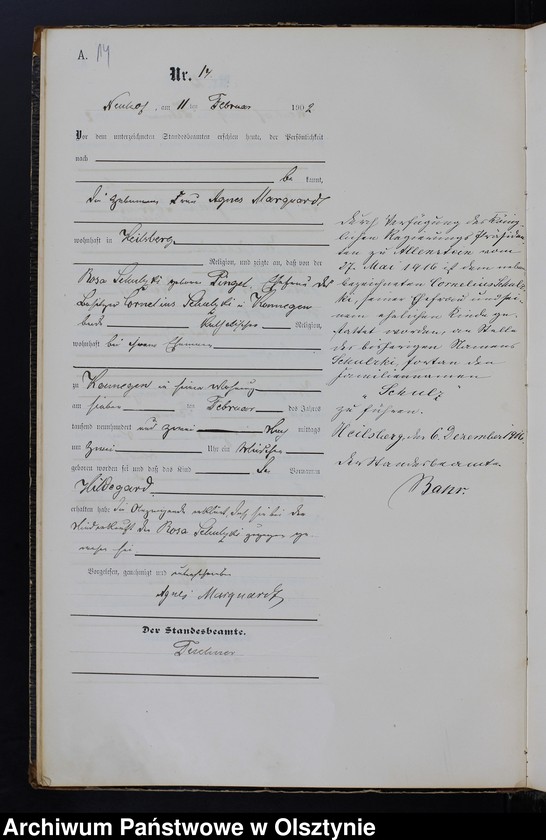 A. 14
Nr. 14
Neuhof, am 11 ten Februar 1902
Vor dem unterzeichneten Standesbeamten erschien heute, der Persönlichkeit
nach
be kannt,
die Hebamme Frau Agnes Marquardt
wohnhaft in Heilsberg
Religion, und zeigte an, daß von der
Rosa Schulzki geborene Pingel, Ehefrau des
Besitzer Cornelius Schulzki in Konnegen
beide Katholischer Religion,
wohnhaft bei ihrem Ehemann
zu Konnegen in seiner Wohnung
am sieben ten Februar des Jahres
tausend neunhundert und zwei Nach mittags
um zwei Uhr ein Mädchen
geboren worden sei und daß das Kind den Vornamen
Hildegard
erhalten habe. Die Anzeigende erklärt, daß sie bei der
Niederkunft der Rosa Schulzki zugegen ge-
wesen sei
Vorgelesen, genehmigt und unterschrieben
Agnes Marquardt
Der Standesbeamte.
Durch Verfügung des König-
lichen Regierungs-Präsiden-
ten zu Allenstein vom
27. Mai 1916 ist dem neben
bezeichneten Cornelius Schulz-
ki, seiner Ehefrau und sei-
nem ehelichen Kinde ge-
stattet worden, an Stelle
des bisherigen Namens
Schulzki, fortan den
Familiennamen
"Schulz"
zu führen.
Heilsberg, den 6. Dezember 1916
Der Standesbeamte
Bahr.
Archiwum Państwowe w Olsztynie